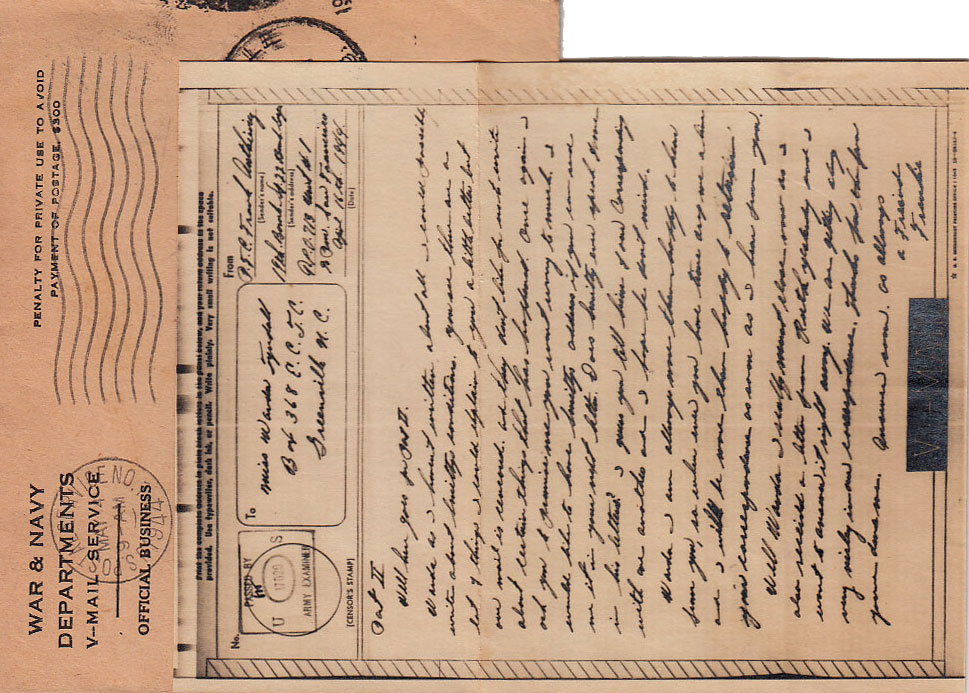 WAR & NAVY
DEPARTMENTS
V--MAIL SERVICE
OFFICIAL BUSINESS
PENALTY FOR PRIVATE USE TO AVOID
PAYMENT OF POSTAGE, $300
9-AM
1944
Print the complete address in plain block letters in the panel below, and your return address in the space
provided. Use typewriter, dark ink, or pencil. Write plainly. Very small writing is not suitable.
No.
PASSED BY
U S
ARMY EXAMINER
(CENSOR'S STAMP)
To
Miss Wanda Tyndall
Box 368 E.C.T.C.
Greenville N.C.
From
P.F.C. Frank
(Sender's name)
(Sender's address)
A.P.O. 718 Unit #1
% P.M. San Francisco
April 16th 1944
(Date)
Part II
Well here goes for Part II.
Wanda as I haven't written about all I could possibly
write about Smitty's condition. You see there are a
lot of things I could explain to you a little better but
our mail is censored. and they don't like for us to write
about certain things that has happened. Once again I
ask you to promise me you won't worry to much. I
would like to have Smitty's address if you can send
me it in your next letter. Does Smitty ever speak of me
in his letters? I guess you tell him of our corresponding
with one another and I hope he don't mind.
Wanda I am always more than happy to hear
from you, so when ever you have time drop me a line
and I will be more than happy to return
your correspondence as soon as I hear from you.
Well Wanda I really must close now as I
also received a letter from Ruth yesterday and I
want to answer it right away. We are getting along
very nicely in our correspondence. Thanks for asking for
your cousin. Answer soon. As always
a Friend
Frankie
U. S. GOVERNMENT PRINTING OFFICE
V-MAIL